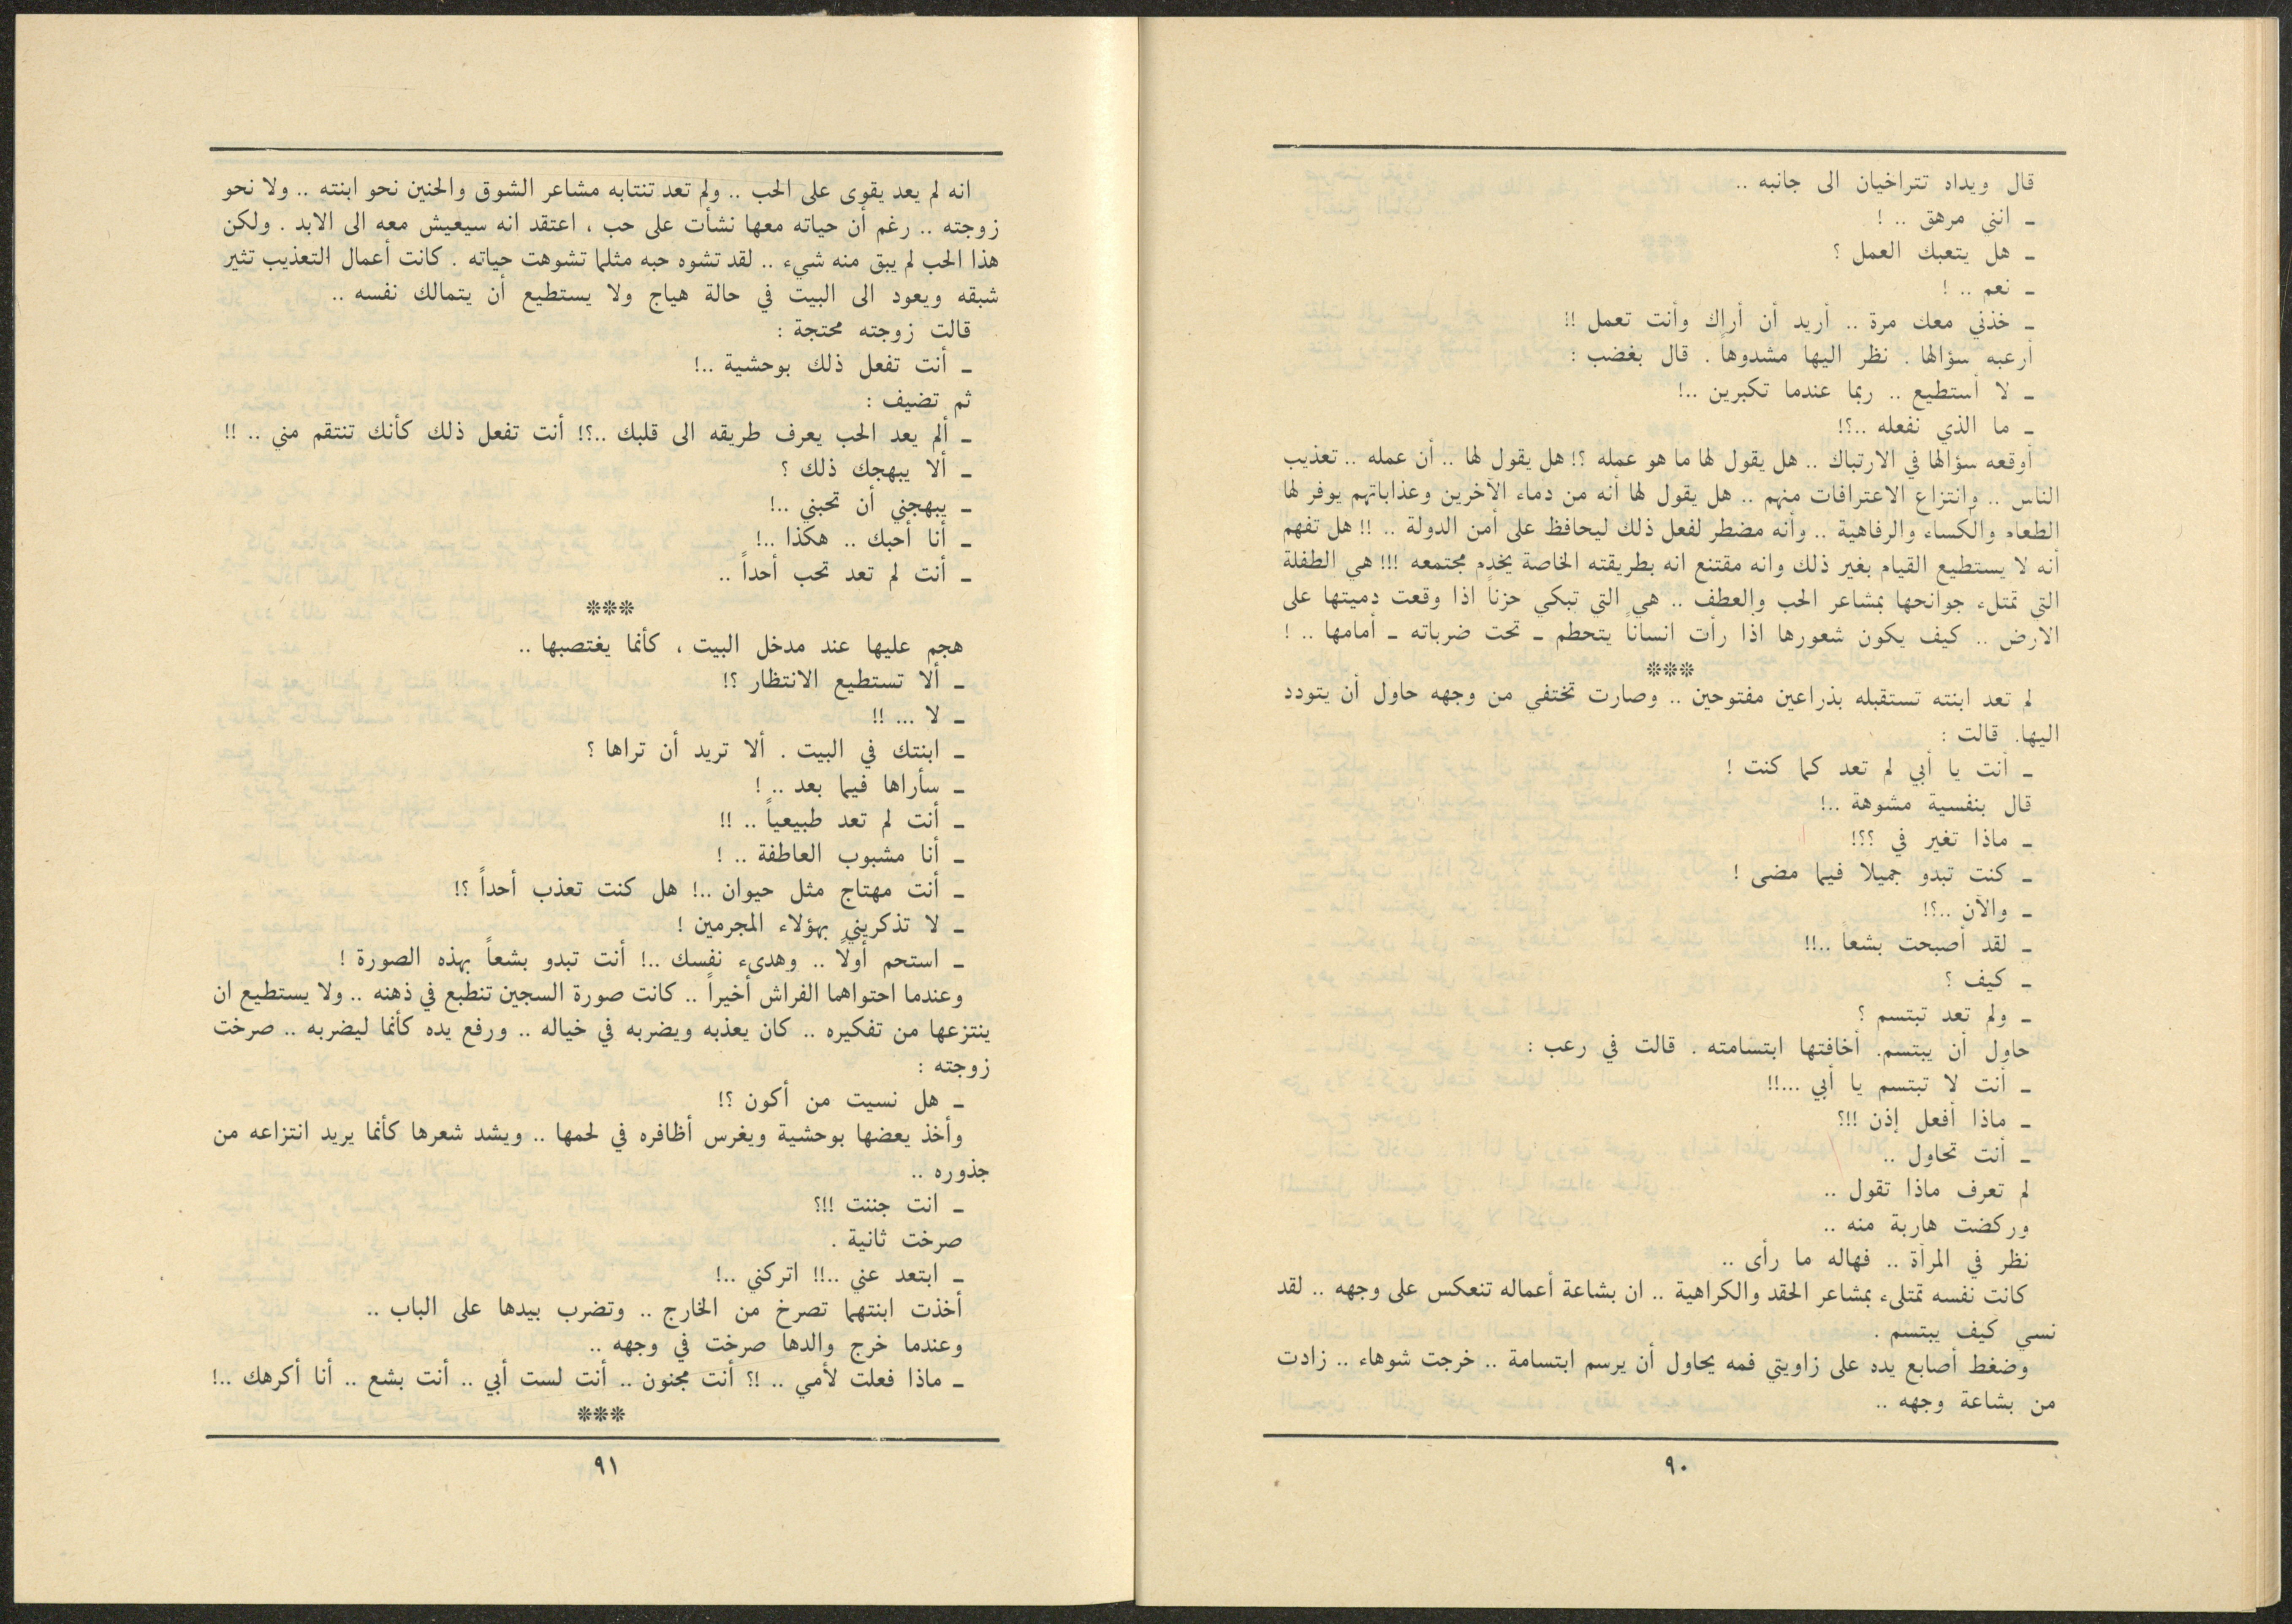 قال ويداه تتراخيان الى جانبه ..
ـ انني مرهق .. !
ـ هل يتعبك العمل ؟
ـ نعم .. !
ـ خذني معك مرة .. أريد أن أراك وأنت تعمل !!
أرعبه سؤالها . نظر اليها مشدوهاً . قال بغضب :
ـ لا أستطيع .. ربما عندما تكبرين ..!
ـ ما الذي تفعله ..؟!
أوقعه سؤالها في الارتباك .. هل يقول لها ما هو عمله ؟! هل يقول لها .. أن عمله .. تعذيب
الناس .. وانتزاع الاعترافات منهم .. هل يقول لها أنه من دماء الآخرين وعذاباتهم يوفر لها
الطعام والكساء والرفاهية .. وأنه مضطر لفعل ذلك ليحافظ على أمن الدولة .. !! هل تفهم
أنه لا يستطيع القيام بغير ذلك وانه مقتنع انه بطريقته الخاصة يخدم مجتمعه !!! هي الطفلة
التي تمتلء جوانحها بمشاعر الحب والعطف .. هي التي تبكي حزناً اذا وقعت دميتها على
الارض .. كيف يكون شعورها اذا رأت انساناً يتحطم ـ تحت ضرباته ـ أمامها .. !
***
لم تعد ابنته تستقبله بذراعين مفتوحين .. وصارت تختفي من وجهه حاول أن يتودد
اليها. قالت :
ـ أنت يا أبي لم تعد كما كنت !
قال بنفسية مشوهة ..!
ـ ماذا تغير في ؟؟!
ـ كنت تبدو جميلا فيما مضى !
ـ والآن ..؟!
ـ لقد أصبحت بشعاً ..!!
ـ كيف ؟
ـ ولم تعد تبتسم ؟
حاول أن يبتسم. أخافتها ابتسامته . قالت في رعب :
ـ أنت لا تبتسم يا أبي ...!!
ـ ماذا أفعل إذن !!؟
ـ أنت تحاول ..
لم تعرف ماذا تقول ..
وركضت هاربة منه ..
نظر في المرآة .. فهاله ما رأى ..
كانت نفسه تمتلىء بمشاعر الحقد والكراهية .. ان بشاعة أعماله تنعكس على وجهه .. لقد
نسي كيف يبتسم .
وضغط أصابع يده على زاويتي فمه يحاول أن يرسم ابتسامة .. خرجت شوهاء .. زادت
من بشاعة وجهه ..
٩٠
انه لم يعد يقوى على الحب .. ولم تعد تنتابه مشاعر الشوق والحنين نحو ابنته .. ولا نحو
زوجته .. رغم أن حياته معها نشأت على حب ، اعتقد انه سيعيش معه الى الابد . ولكن
هذا الحب لم يبق منه شيء .. لقد تشوه حبه مثلما تشوهت حياته . كانت أعمال التعذيب تثير
شبقه ويعود الى البيت في حالة هياج ولا يستطيع أن يتمالك نفسه ..
قالت زوجته محتجة :
ـ أنت تفعل ذلك بوحشية ..!
ثم تضيف :
ـ ألم يعد الحب يعرف طريقه الى قلبك ..؟! أنت تفعل ذلك كأنك تنتقم مني .. !!
ـ ألا يبهجك ذلك ؟
ـ يبهجني أن تحبني ..!
ـ أنا أحبك .. هكذا ..!
ـ أنت لم تعد تحب أحداً ..
***
هجم عليها عند مدخل البيت ، كأنما يغتصبها ..
ـ ألا تستطيع الانتظار ؟!
ـ لا ... !!
ـ ابنتك في البيت . ألا تريد أن تراها ؟
ـ سأراها فيما بعد .. !
ـ أنت لم تعد طبيعياً .. !!
ـ أنا مشبوب العاطفة .. !
ـ أنت مهتاج مثل حيوان ..! هل كنت تعذب أحداً ؟!
ـ لا تذكريني بهؤلاء المجرمين !
ـ استحم أولاً .. وهدىء نفسك ..! أنت تبدو بشعاً بهذه الصورة !
وعندما احتواهما الفراش أخيراً .. كانت صورة السجين تنطبع في ذهنه .. ولا يستطيع ان
ينتزعها من تفكيره .. كان يعذبه ويضربه في خياله .. ورفع يده كأنما ليضربه .. صرخت
زوجته :
ـ هل نسيت من أكون ؟!
وأخذ يعضها بوحشية ويغرس أظافره في لحمها .. ويشد شعرها كأنما يريد انتزاعه من
جذوره ..
ـ انت جننت !!؟
صرخت ثانية .
ـ ابتعد عني ..!! اتركني ..!
أخذت ابنتهما تصرخ من الخارج .. وتضرب بيدها على الباب ..
وعندما خرج والدها صرخت في وجهه ..
ـ ماذا فعلت لأمي .. !؟ أنت مجنون .. أنت لست أبي .. أنت بشع .. أنا أكرهك ..!
***
٩١